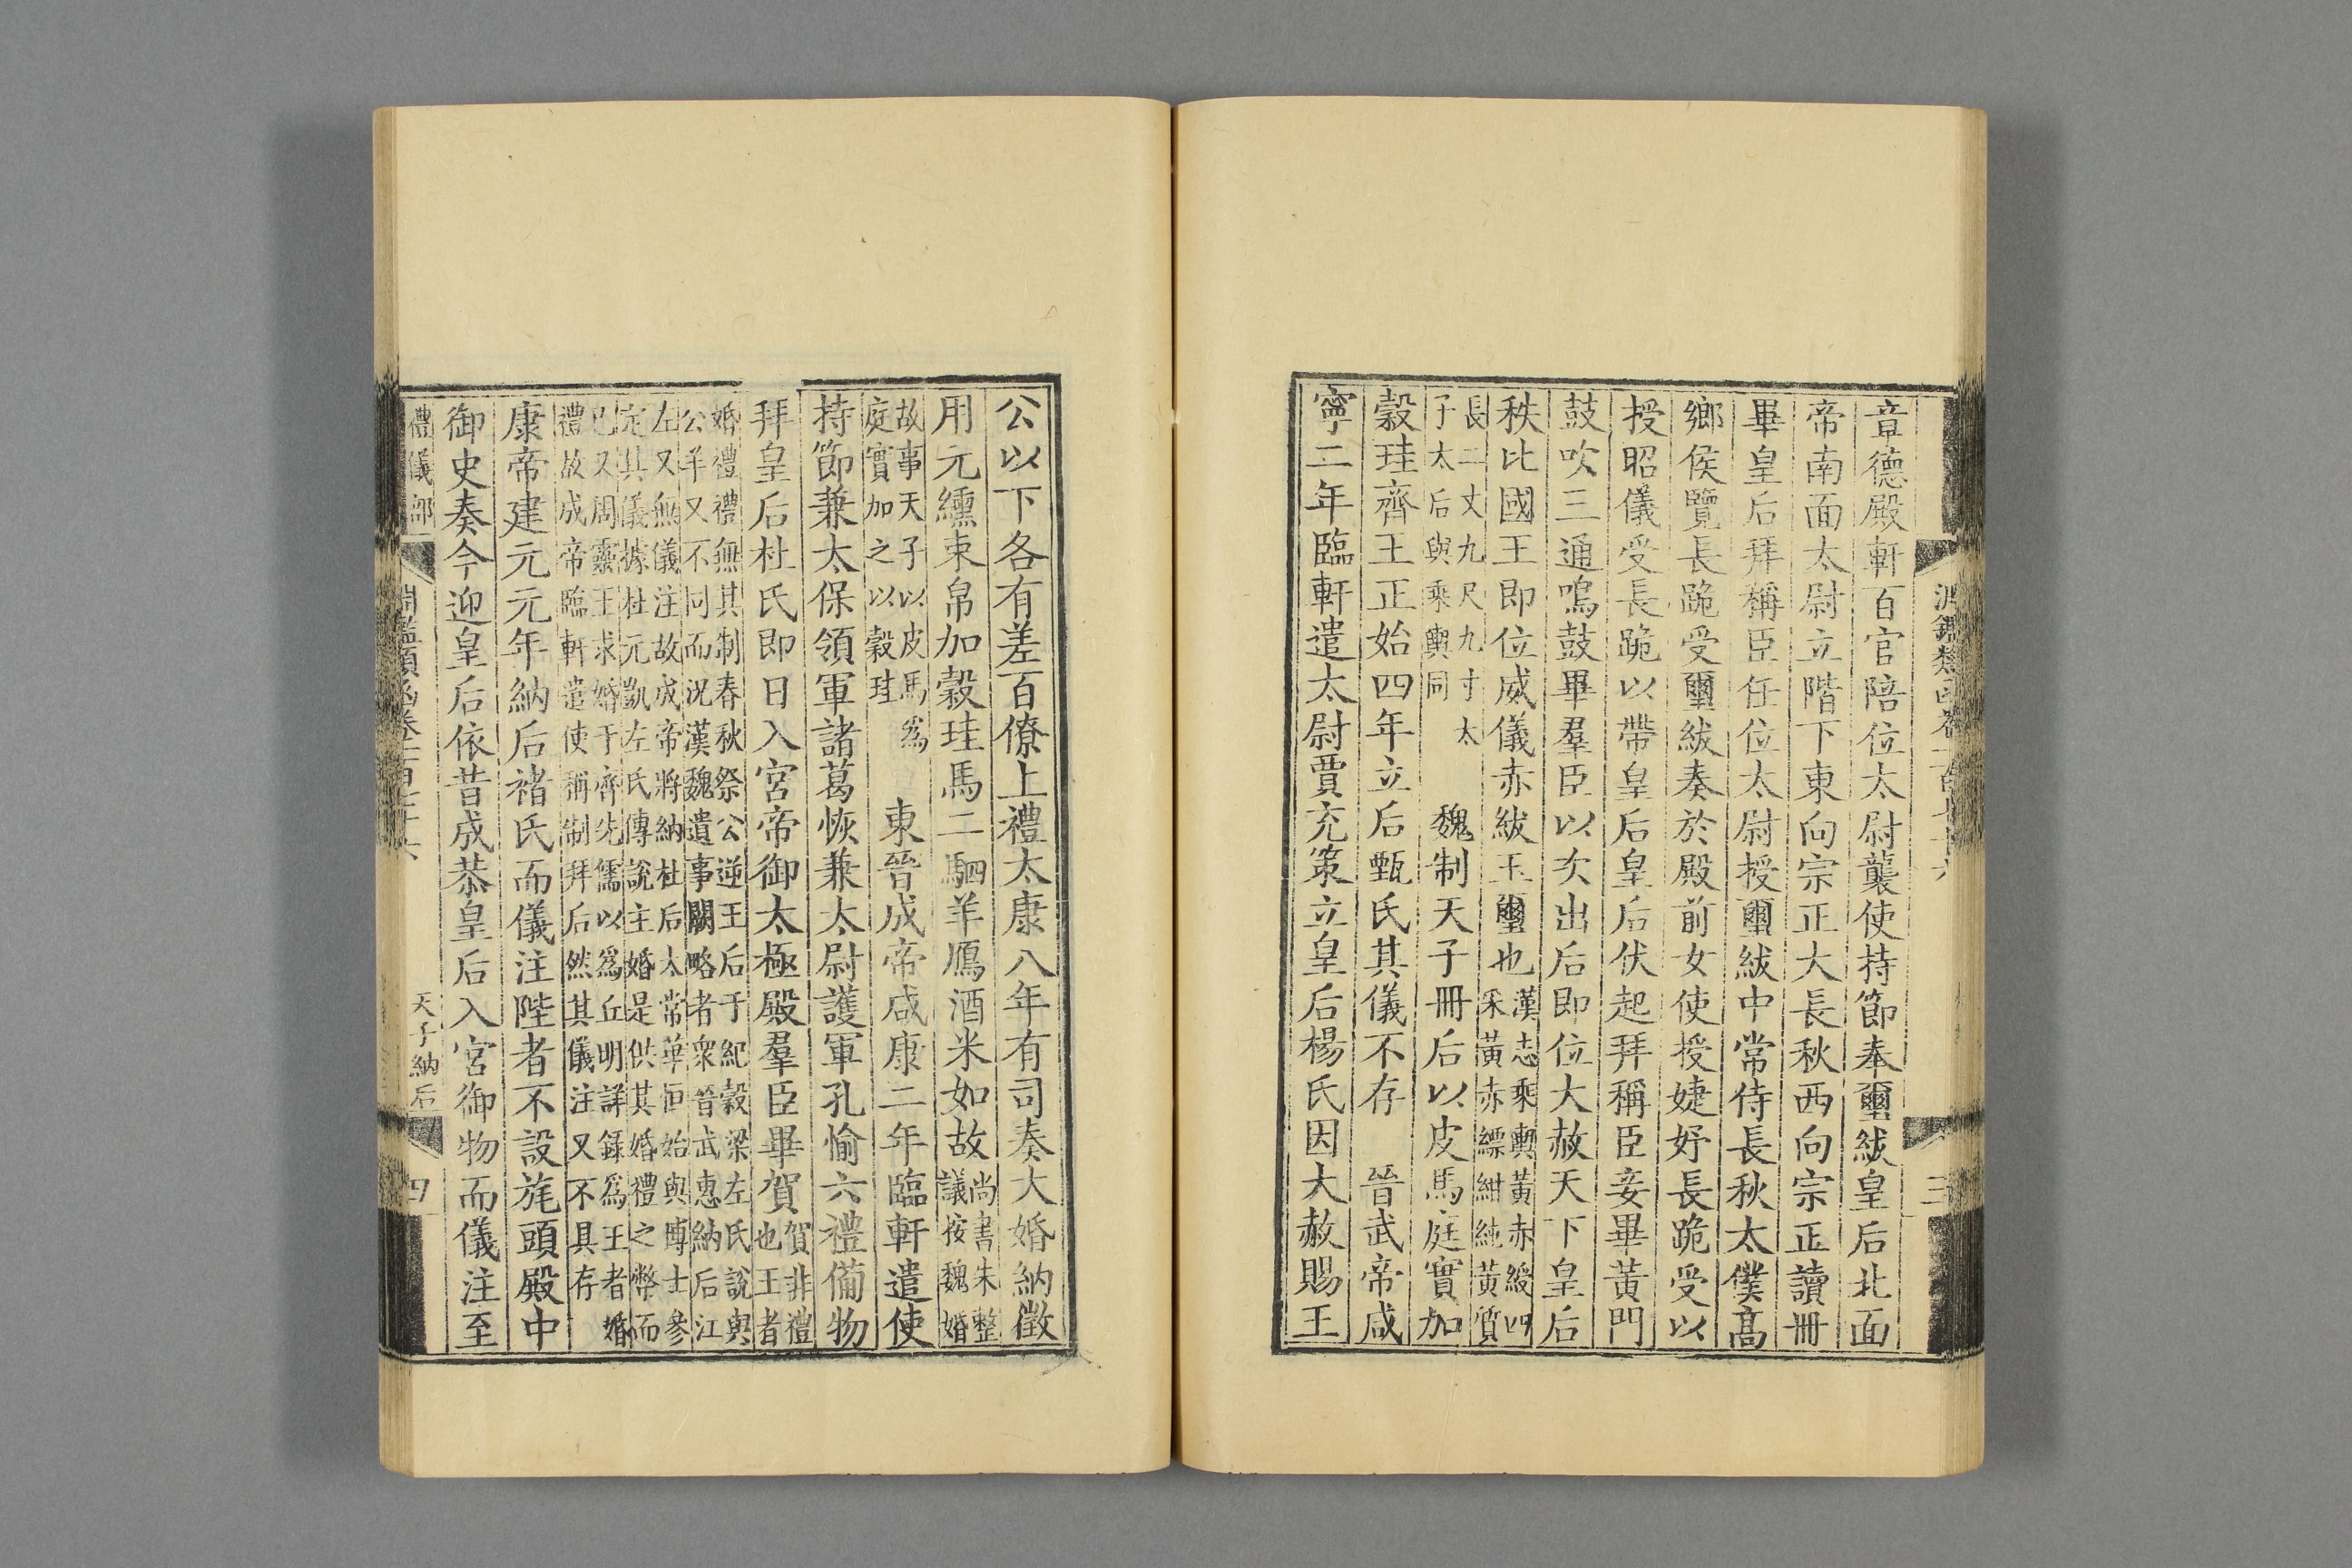 章德殿軒百官陪位太尉襲使持節奉璽紱皇后北面
帝南面太尉立階下東向宗正大長秋西向宗正讀冊
畢皇后拜稱臣妾位太尉授璽紱中常侍長秋太僕高
鄉侯覽長跪受璽紱奏於殿前女使授婕妤長跪受以
授昭儀受長跪以帶皇后皇后伏起拜稱臣妾畢黃門
鼓吹三通鳴鼓畢羣臣以次出后即位大赦天下皇后
秩比國王即位威儀赤紱玉璽也漢志乘輿黃赤綬四
采黃赤縹紺純黃質
長二丈九尺九寸太
子太后與乘輿同魏制天子冊后以皮馬庭實加
穀珪齊王正始四年立后甄氏其儀不存 晉武帝咸
寧二年臨軒遣太尉賈充策立皇后楊氏因大赦賜王
公以下各有差百僚上禮太康八年有司奏大婚納徵
用元纁束帛加穀珪馬二駟羊鴈酒米如故尚書朱整
議按魏婚
故事天子以皮馬為
庭實加之以穀珪東晉成帝咸康二年臨軒遣使
持節兼太保領軍諸葛恢兼太尉護軍孔愉六禮備物
拜皇后杜氏即日入宮帝御太極殿羣臣畢賀賀非禮
也王者
婚禮禮無其制春秋祭公逆王后于紀穀梁左氏說與
公羊又不同而況漢魏遺事闕略者衆晉武惠納后江
左又無儀注故成帝將納杜后太常華恒始與博士參
定其儀據杜元凱左氏傳說主婚是供其婚禮之幣而
已又周靈王求婚于齊先儒以為丘明詳錄為王者婚
禮故成帝臨軒遣使稱制拜后然其儀注又不具存
康帝建元元年納后褚氏而儀注陛者不設旄頭殿中
御史奏今迎皇后依昔成恭皇后入宮御物而儀注至
禮儀部
天子納后
四